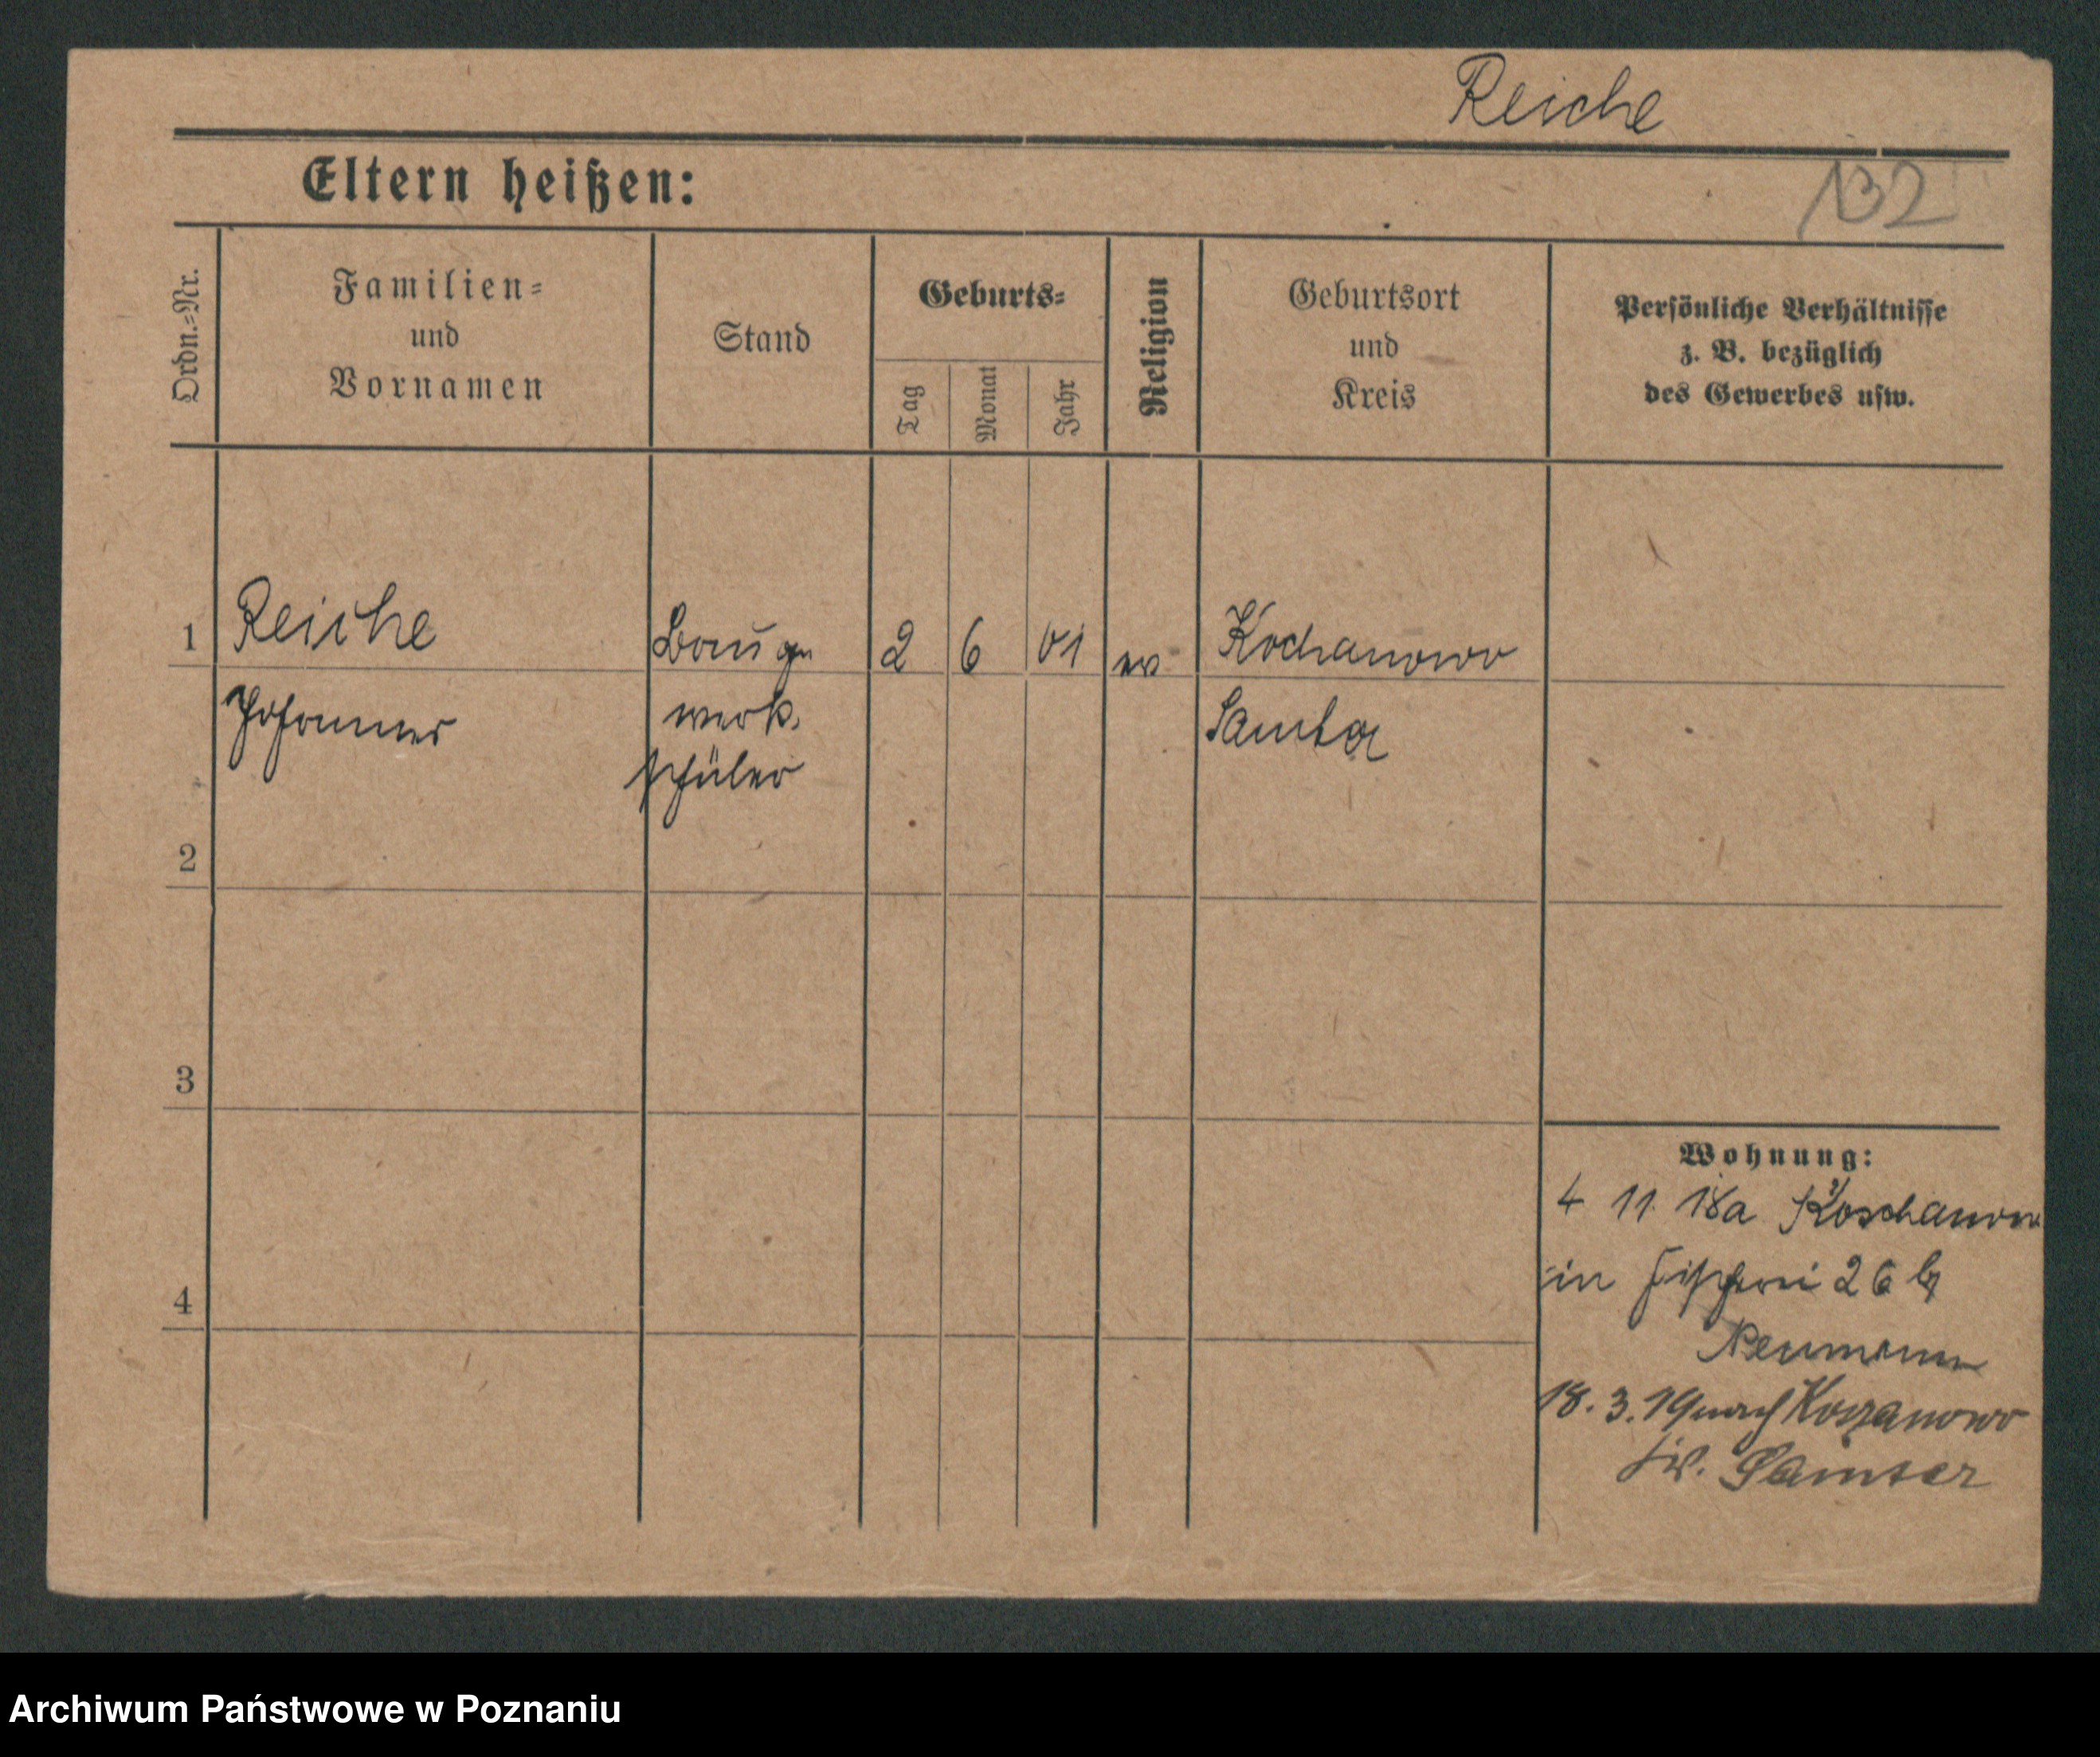 Reiche
Eltern heißen:
132
Ordn.=Nr.
Familien=
und
Vornamen
Stand
Geburts=
Tag
Monat
Jahr
Religion
Geburtsort
und
Kreis
Persönliche Verhältnisse
z. B. bezüglich
des Gewerbes usw.
1 Reiche Bauge 2 6 01 ev Kochanowo
Johannes werk. Samter
schüler
2
3
Wohnung:
4 11. 18 a Koschanowo
4
in Fischerei 26 b
Neumann
18. 3. 19 nach Koszanowo
Samter
Archiwum Państwowe w Poznaniu